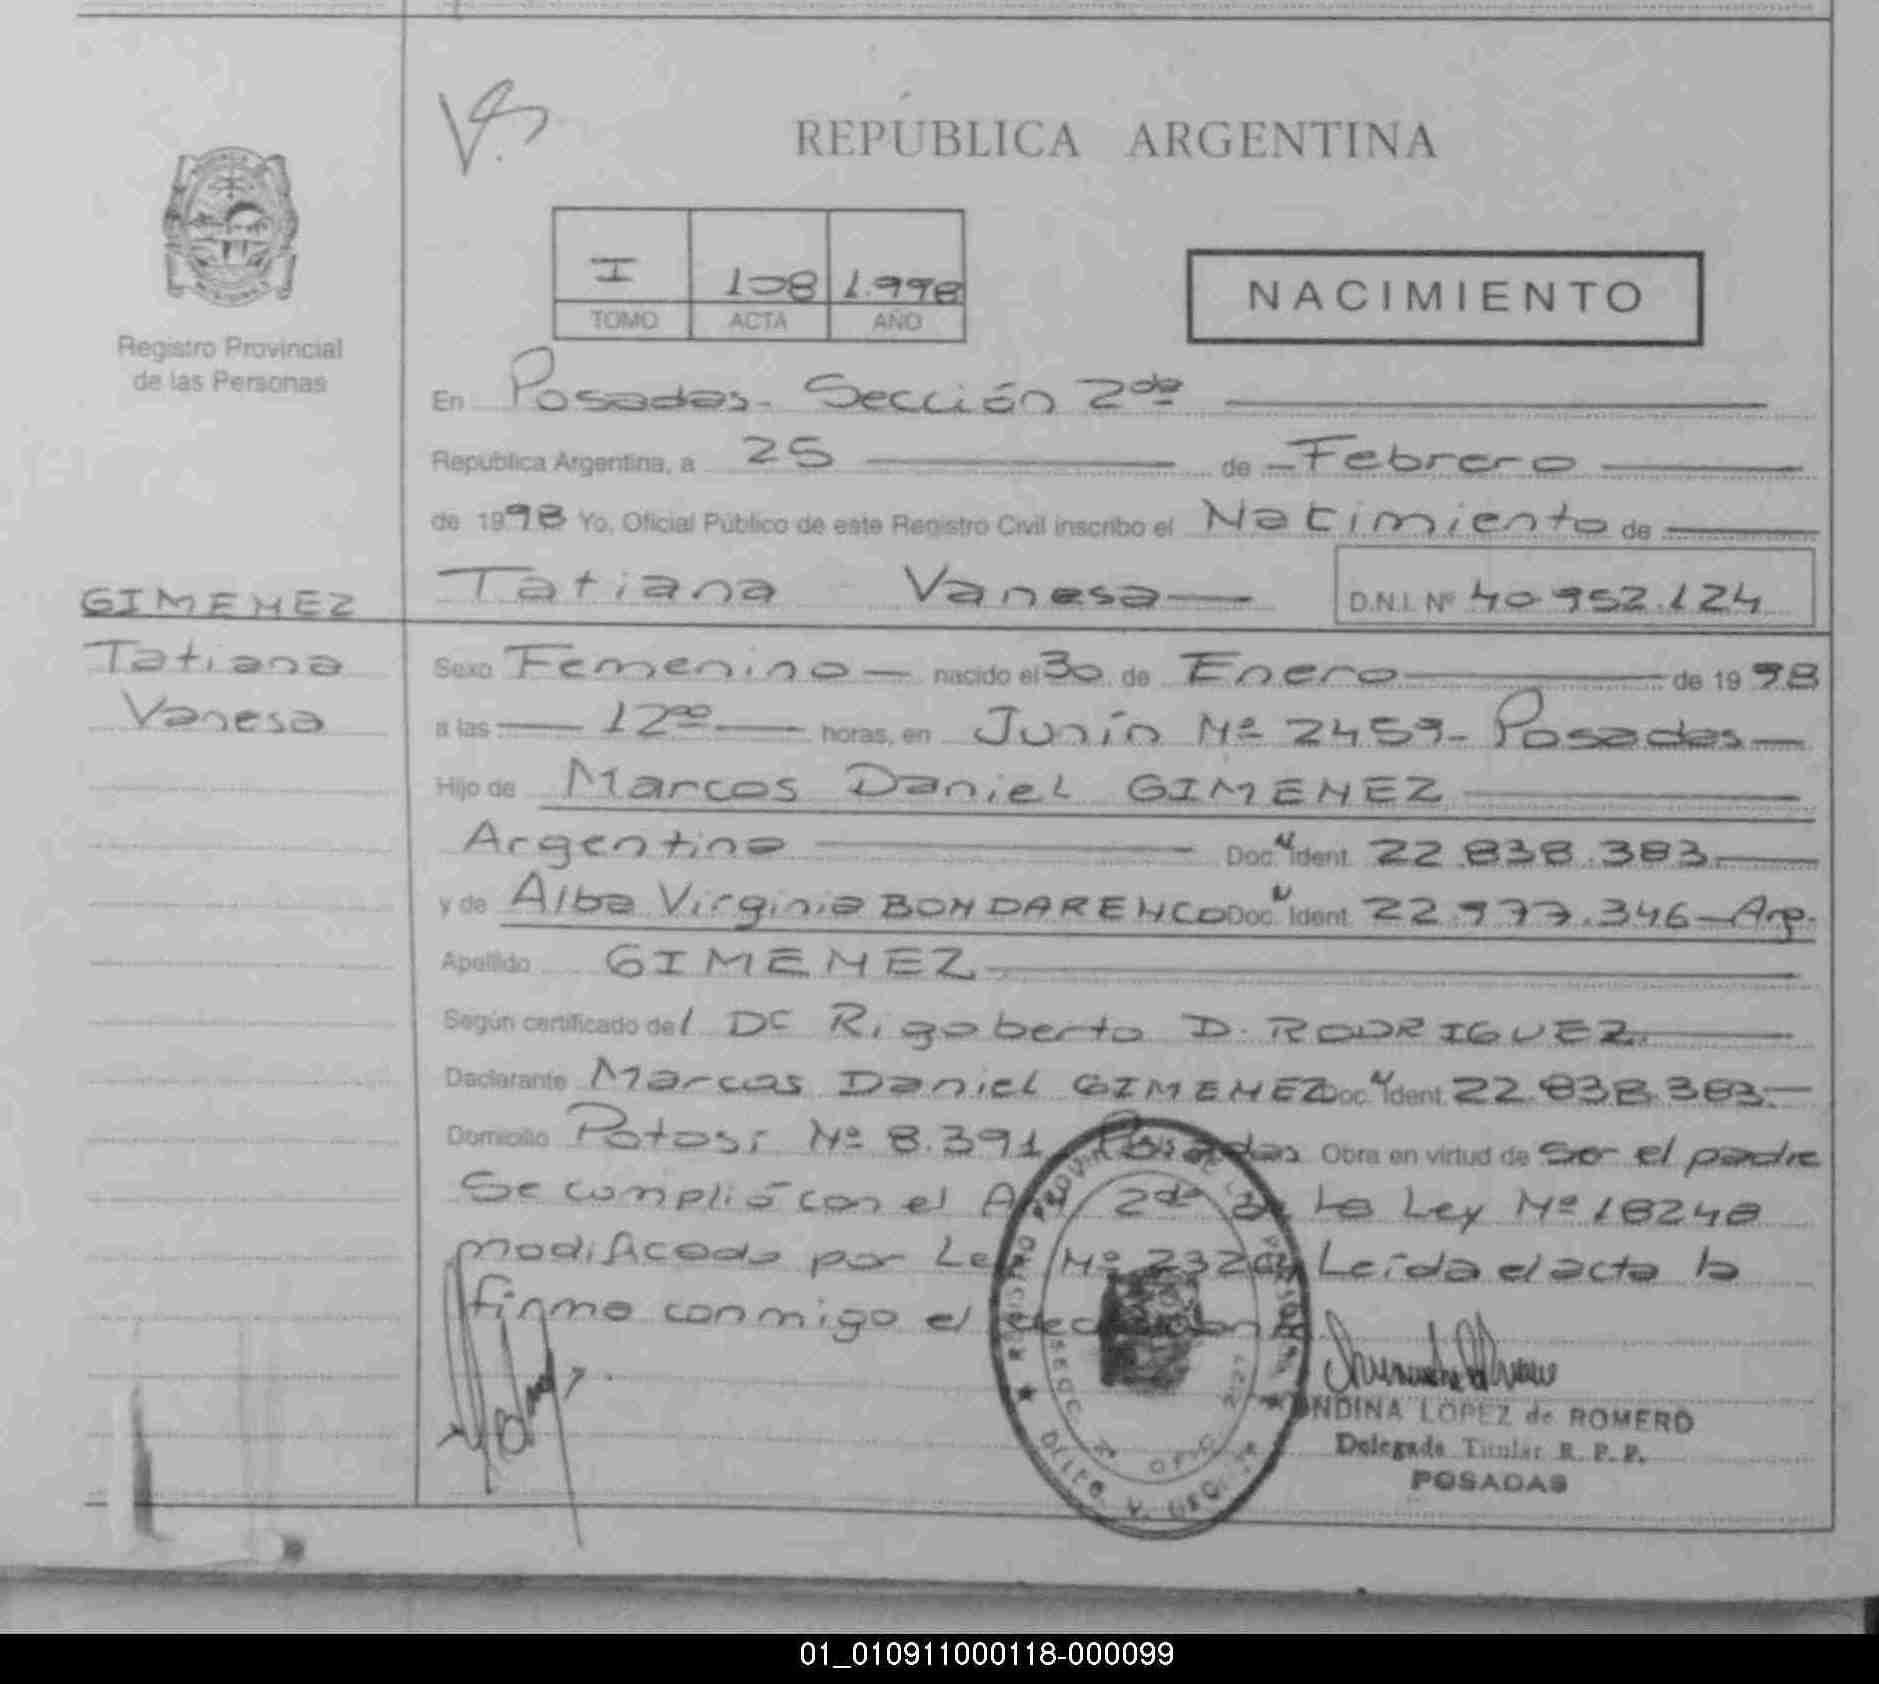 REPÚBLICA ARGENTINA
I 108 1.998
TOMO ACTA AÑO
NACIMIENTO
Registro Provincial
de las Personas
En Posadas- Sección 2da
República Argentina, a 25 de Febrero
de 1998 Yo, Oficial Público de este Registro Civil inscribo el Nacimiento de
Tatiana Vanesa D.N.I. Nº 40 952.124
GIMENEZ
Tatiana
Vanesa
Sexo Femenino nacido el 30 de Enero de 1998
a las 12⁰⁰ horas, en Junín Nº 2459- Posadas
Hijo de Marcos Daniel GIMENEZ
Argentino Doc. N Ident. 22.838.383
y de Alba Virginia BONDARENCO Doc. N Ident. 22.977.346 Arg.
Apellido GIMENEZ
Según certificado del Dr Rigoberto D. RODRIGUEZ.
Declarante Marcos Daniel GIMENEZ Doc. N Ident. 22.838.383.
Domicilio Potosi Nº 8.391 Posadas Obra en virtud de ser el padre
Se cumplió con el Art 2do de La Ley Nº 18248
modificada por Ley Nº Leída el acta la
firma conmigo el declarante
REGISTRO PROVINCIAL DE LAS PERSONAS
SECC. 2ª OFIC.
NDINA LOPEZ de ROMERO
Delegada Titular R. P. P.
POSADAS
01_010911000118-000099